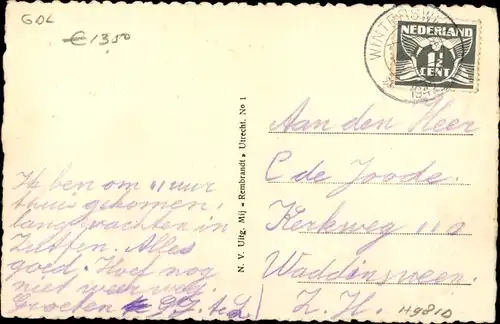 GDL
€ 13,50
WINTERSWIJK
NEDERLAND
1½
CENT
Aan den Heer
C de Joode.
Kerkweg 110
Waddinxveen.
Z. H.
H9810
N. V. Uitg. Mij „Rembrandt" Utrecht. No 1
Ik ben om 11 uur
thuis gekomen,
lang wachten in
Zutfen. Alles
goed. Hoef nog
niet weer weg.
Groeten